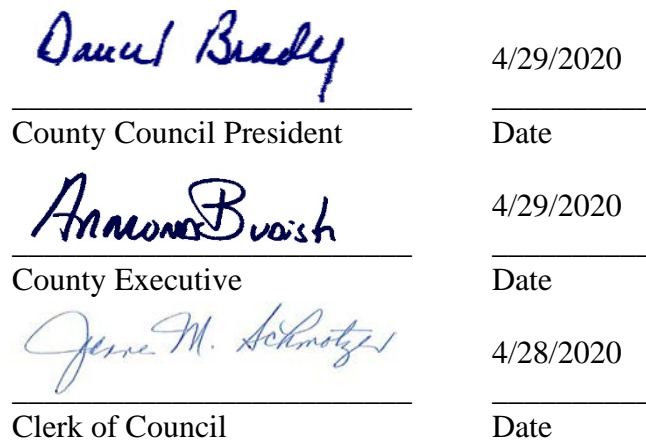 Daniel Brady 4/29/2020
County Council President Date
Armond Budish 4/29/2020
County Executive Date
Jeanne M. Schmotzer 4/28/2020
Clerk of Council Date